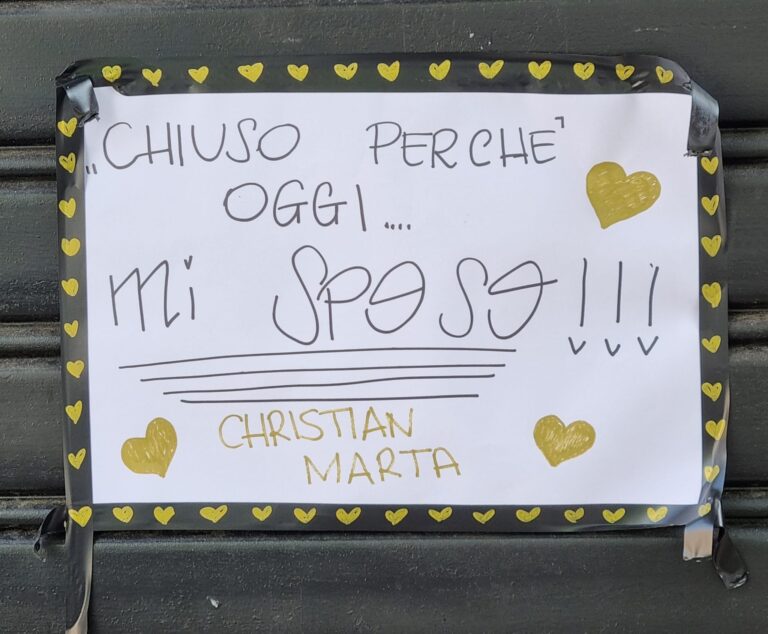 „CHIUSO PERCHE'
OGGI....
mi SPOSO !!!
CHRISTIAN
MARTA